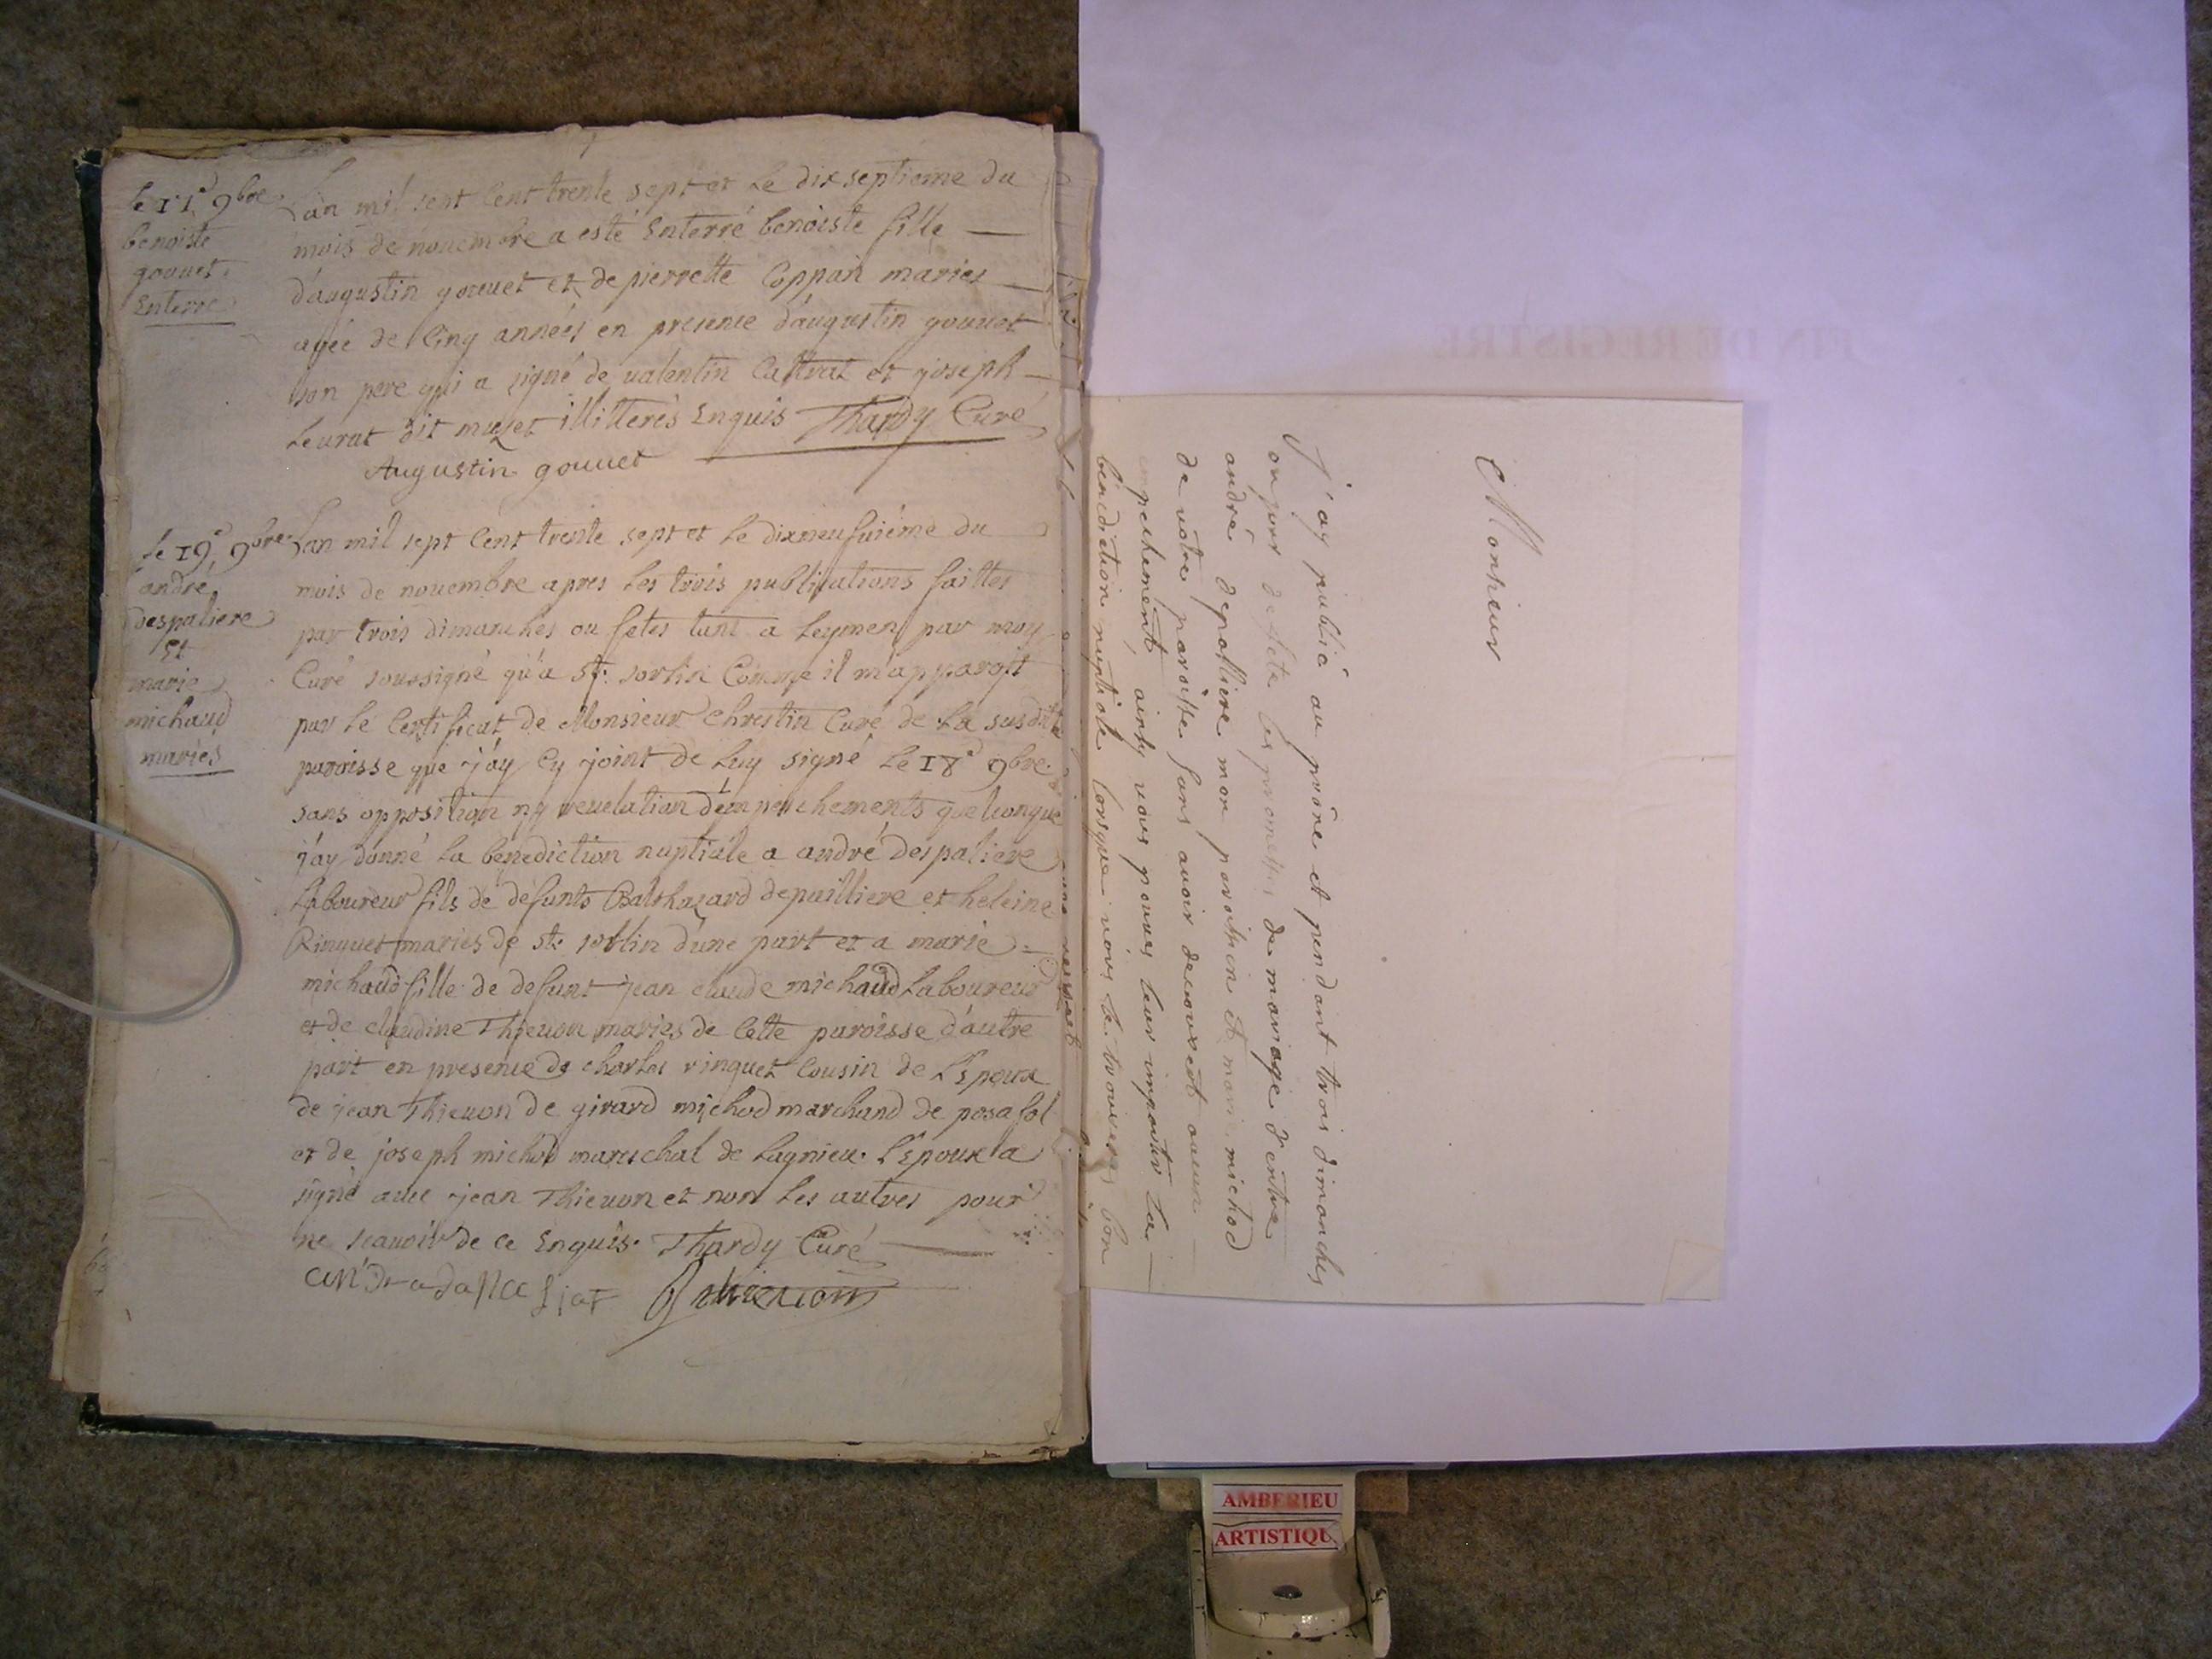 Le 17e 9bre
benoiste
gouuet
Enterré
Lan mil sept Cent trente sept et Le dix septieme du
mois de nouembre a esté Enterré benoiste fille
d'augustin gouuet et de pierrette Coppain mariés
agée de Cinq années en presence d'augustin gouuet
son pere qui a signé de ualentin Cattrat et joseph
Leurat dit muzet illitterés Enquis Thardy Curé
Augustin gouuet
Le 19e 9bre
andré
despaliere
Et
marie
michaud
mariés
Lan mil sept Cent trente sept et Le dixneufuiéme du
mois de nouembre apres Les trois publications faittes
par trois dimanches ou fetes tant a Leymen par moy
Curé soussigné qu'a St. sorlin Comme il m'apparoit
par Le Certificat de Monsieur Chrestin Curé de La susditte
paroisse que j'ay Cy joint de Luy signé Le 18e 9bre
sans opposition ny reuelation d'empechements quelconque
j'ay donné La bénediction nuptiale a andré despaliere
Laboureur fils de défunts Balthazard depailliere et heleine
Rinquet mariés de St. sorlin d'une part et a marie
michaud fille de defunt jean claude michaud Laboureur
et de claudine Thieuon mariés de Cette paroisse d'autre
part en presence de charles rinquet Cousin de L'Epoux
de jean Thieuon de girard michod marchand de posafol
et de joseph michod mareschal de Lagnieu. L'Epoux a
signé auec jean Thieuon et non Les autres pour
ne scauoir de ce Enquis. Thardy Curé
Thieuon
Monsieur
J'ay publié au prône et pendant trois dimanches
ou jour de fete les promesses de mariage d'entre
andré depalliere mon paroissien et marie michod
de votre paroisse sans auoir decouvert aucun
empechement ainsy vous pouves leur impartir la
benediction nuptiale lorsque vous le trouveres bon
FIN DE REGISTRE
AMBERIEU
ARTISTIQU